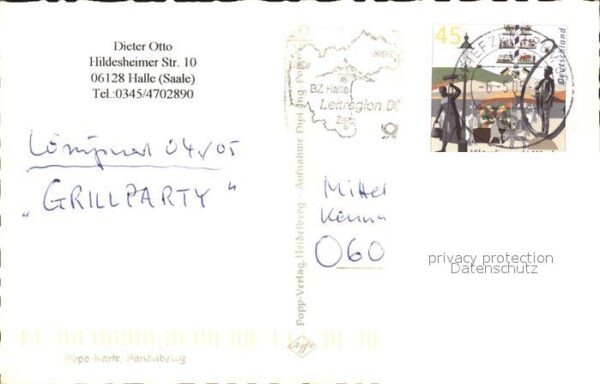 Dieter Otto
Hildesheimer Str. 10
06128 Halle (Saale)
Tel.:0345/4702890
Lösung 04/05
"GRILLPARTY"
BZ Halle
Leitregion 06
Zeitz
45
Deutschland
BRIEFZENTRUM
Mittel
Kennw
060
Popp-Verlag, Heidelberg - Aufnahme Dipl. Ing. Popp
Agfa
Popp-Karte, Handabzug
privacy protection
Datenschutz